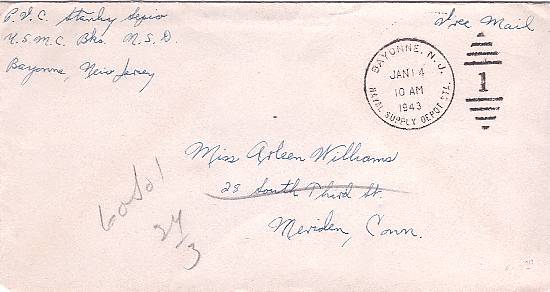 P.F.C. Stanley Sepio
U.S.M.C. Bks. N.S.D.
Bayonne, New Jersey
Free Mail
BAYONNE, N.J.
JAN 14
10 AM
1943
NAVAL SUPPLY DEPOT STA.
1
Miss Arleen Williams
28 South Third St.
Meriden, Conn.
24/3